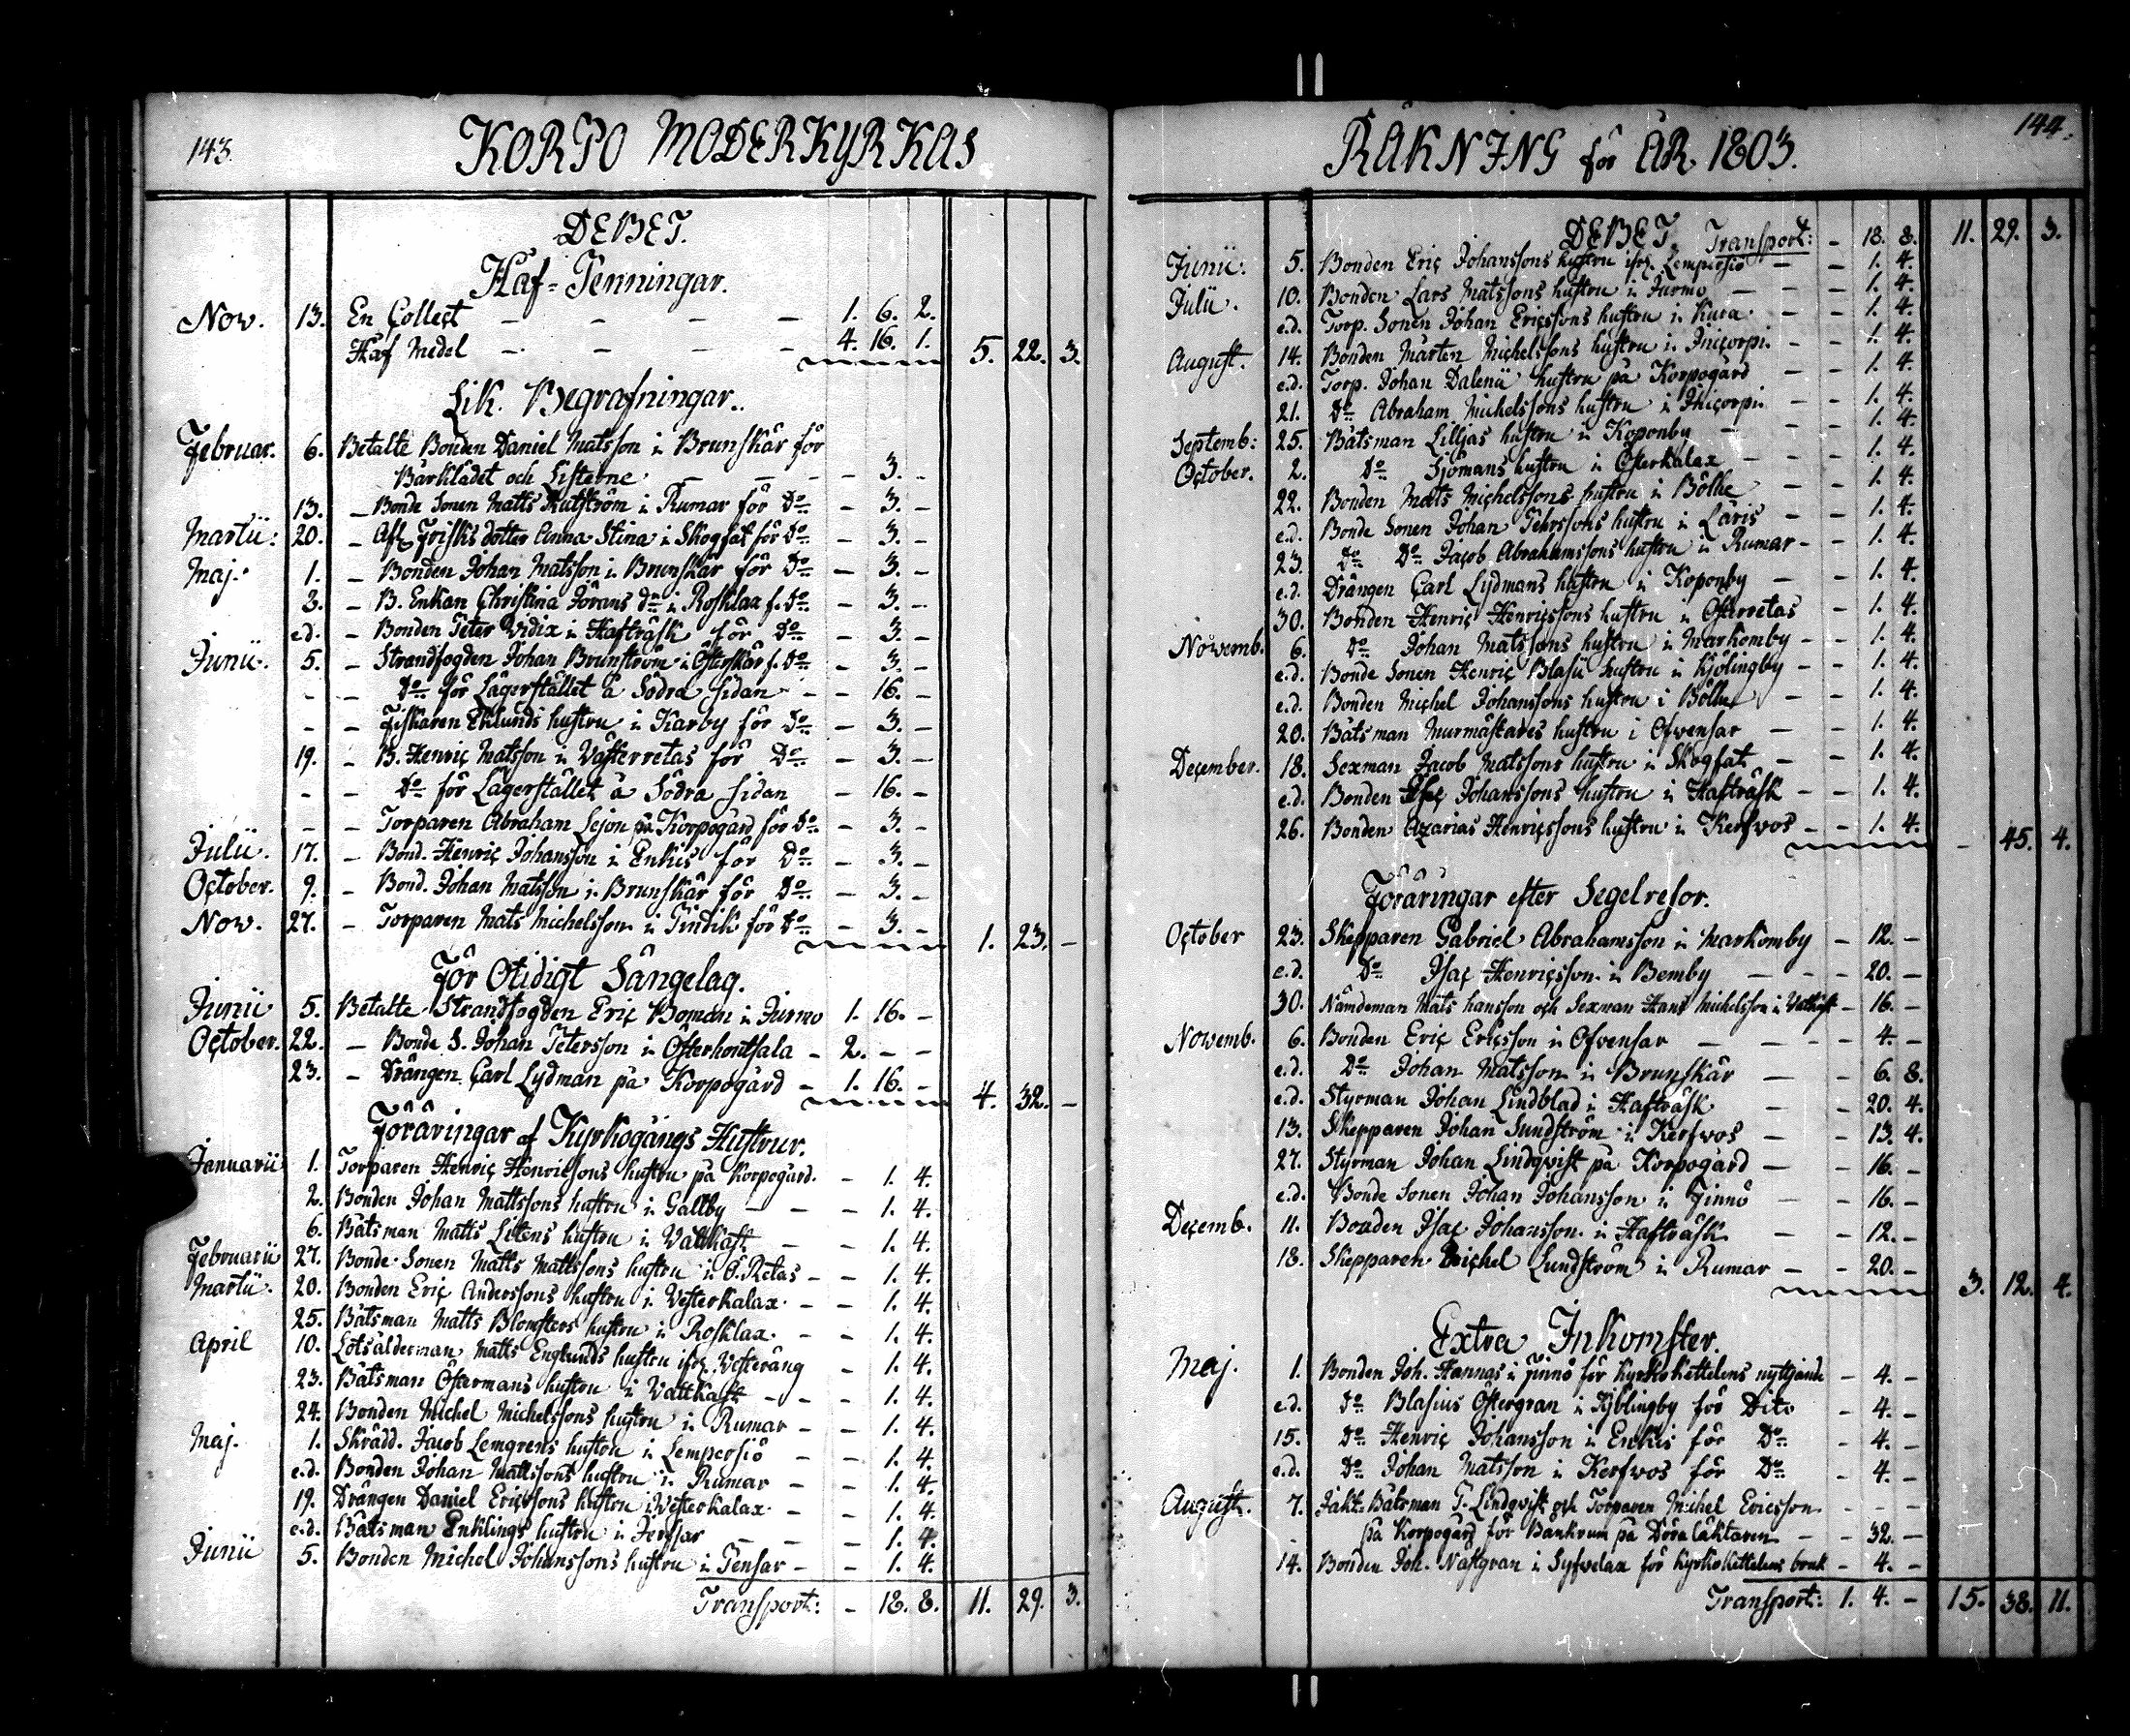 143. KORPO MODERKYRKAS
DEBET.
Håf-Penningar.
Nov. 13. En Collect — — — — 1. 6. 2.
Håf Medel — — — — 4. 16. 1. 5. 22. 3.
Lik. Begrafningar.
Februar. 6. Betalte Bonden Daniel Matsson i Brunskär för
Bårklädet och Listerne — — — 3. —
13. — Bonde Sonen Matts Rutström i Rumar för Do — 3. —
Martii: 20. — Afl. Frisks dotter Anna Stina i Skogfat för Do — 3. —
Maj. 1. — Bonden Johan Matsson i Brunskär för Do — 3. —
3. — B. Enkan Christina Jörans dr i Rosklax f. Do — 3. —
e.d. — Bonden Peter Widix i Hafträsk för Do — 3. —
Junii. 5. — Strandfogden Johan Brunström i Österskär f. Do — 3. —
— — Do för Lägerstället å Södra sidan — — 16. —
— — Fiskaren Eklunds hustru i Karby för Do — 3. —
19. — B. Henric Matsson i Västerretas för Do — 3. —
— — Do för Lägerstället å Södra sidan — 16. —
— — Torparen Abraham Lejon på Korpogård för Do — 3. —
Julii. 17. — Bond. Henric Johansson i Enkis för Do — 3. —
October. 9. — Bond. Johan Matsson i Brunskär för Do — 3. —
Nov. 27. — Torparen Mats Michelsson i Findik för Do — 3. — 1. 23. —
För Otidigt Sängelag.
Junii 5. Betalte Strandfogden Eric Boman i Jurmo 1. 16. —
October. 22. — Bonde S. Johan Petersson i Österhontsala — 2. — —
23. — Drängen Carl Lydman på Korpogård — 1. 16. — 4. 32. —
Föräringar af Kyrkogångs Hustrur.
Januarii 1. Torparen Henric Henricssons hustru på Korpogård. — 1. 4.
2. Bonden Johan Mattssons hustru i Gallby — — — 1. 4.
6. Båtsman Matts Litens hustru i Vattkast — — 1. 4.
Februarii 27. Bonde Sonen Matts Mattssons hustru i Ö. Retas — — 1. 4.
Martii. 20. Bonden Eric Anderssons hustru i Vesterkalax. — — 1. 4.
25. Båtsman Matts Blomsters hustru i Rosklax. — — 1. 4.
April 10. Lotsålderman Matts Englunds hustru ifrå Vesteräng — 1. 4.
23. Båtsman Östermans hustru i Vattkast — — — 1. 4.
24. Bonden Michel Michelssons hustru i Rumar — — 1. 4.
Maj. 1. Skrädd. Jacob Lemgrens hustru i Lempersiö — — 1. 4.
e.d. Bonden Johan Mattssons hustru i Rumar — — 1. 4.
19. Drängen Daniel Ericssons hustru i Vesterkalax. — — 1. 4.
e.d. Båtsman Enklings hustru i Jersar — — — 1. 4.
Junii 5. Bonden Michel Johanssons hustru i Pensar — — 1. 4.
Transport: — 18. 8. 11. 29. 3.
RÄKNING för ÅR 1803. 144.
DEBET Transport: — 18. 8. 11. 29. 3.
Junii: 5. Bonden Eric Johanssons hustru ifrå Lempersiö — — 1. 4.
Julii. 10. Bonden Lars Matssons hustru i Jurmo — — — 1. 4.
e.d. Torp. Sonen Johan Ericssons hustru i Kura. — — 1. 4.
August. 14. Bonden Mårten Michelssons hustru i Jnicorpi. — — 1. 4.
e.d. Torp. Johan Dalenii hustru på Korpogård — — 1. 4.
21. Do Abraham Michelssons hustru i Jnicorpi — — 1. 4.
Septemb: 25. Båtsman Lilljas hustru i Koponby — — 1. 4.
October. 2. Do Sjömans hustru i Österkalax — — — 1. 4.
22. Bonden Mats Michelssons hustru i Bölhe — — 1. 4.
e.d. Bonde Sonen Johan Pehrssons hustru i Laris — — 1. 4.
23. Do Do Jacob Abrahamssons hustru i Rumar — — 1. 4.
e.d. Drängen Carl Lydmans hustru i Koponby — — 1. 4.
30. Bonden Henric Henricssons hustru i Österretas — 1. 4.
Novemb. 6. Do Johan Matssons hustru i Markomby — — 1. 4.
e.d. Bonde Sonen Henric Blasii hustru i Kjölingby — — 1. 4.
e.d. Bonden Michel Johanssons hustru i Bölhe — — 1. 4.
20. Båtsman Murmästares hustru i Ofvensar — — 1. 4.
December. 18. Sexman Jacob Matssons hustru i Skogfat — — 1. 4.
e.d. Bonden Isac Johanssons hustru i Hafträsk — — 1. 4.
26. Bonden Azarias Henricssons hustru i Kerfvos — — 1. 4. — 45. 4.
Föräringar efter Segelresor.
October 23. Skepparen Gabriel Abrahamsson i Markomby — 12. —
e.d. Do Isac Henricsson i Bemby — — — 20. —
30. Nämdeman Mats Hansson och Sexman Hans Michelsson i Vattkast — 16. —
Novemb. 6. Bonden Eric Ericsson i Ofvensar — — — — 4. —
e.d. Do Johan Matsson i Brunskär — — 6. 8.
e.d. Styrman Johan Lindblad i Hafträsk — — 20. 4.
13. Skepparen Johan Sundström i Kerfvos — — 13. 4.
27. Styrman Johan Lindqvist på Korpogård — — 16. —
e.d. Bonde Sonen Johan Johansson i Finnö — — 16. —
Decemb. 11. Bonden Isac Johansson i Hafträsk — — 12. —
18. Skepparen Michel Lundström i Rumar — — 20. — 3. 12. 4.
Extra Inkomster.
Maj. 1. Bonden Joh. Hannas i Finnö för Kyrkokettelens nyttjande — 4. —
e.d. Do Blasius Östergran i Kjölingby för Dito — 4. —
15. Do Henric Johansson i Enkis för Do — 4. —
e.d. Do Johan Matsson i Kerfvos för Do — 4. —
August. 7. Jakt-Båtsman P. Lindqvist och Torparen Michel Ericsson. — — —
på Korpogård för Bänkrum på Döra Läktaren — — 32. —
14. Bonden Joh. Nästgran i Syfvelax för Kyrkokettelens bruk — 4. —
Transport: 1. 4. — 15. 38. 11.